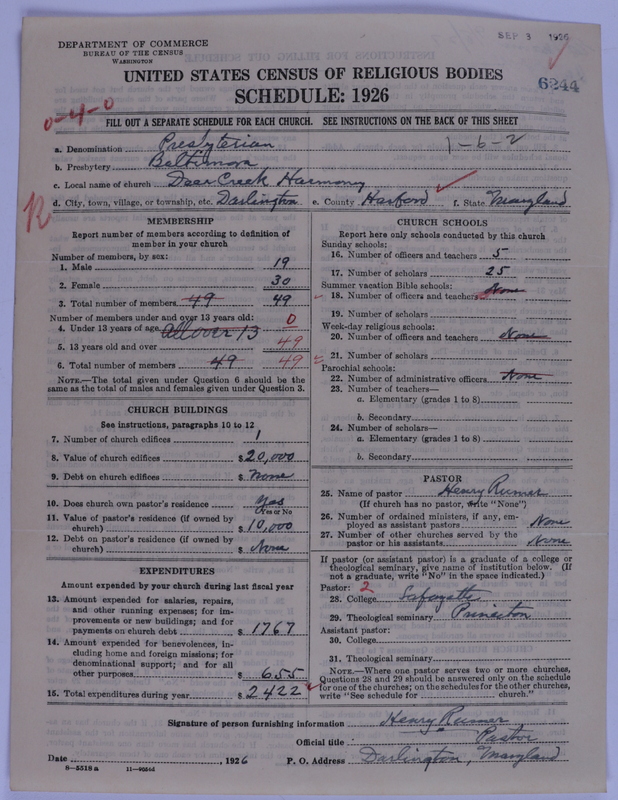 SEP 3 1926
DEPARTMENT OF COMMERCE
BUREAU OF THE CENSUS
WASHINGTON
UNITED STATES CENSUS OF RELIGIOUS BODIES
6244
SCHEDULE: 1926
0-4-0
FILL OUT A SEPARATE SCHEDULE FOR EACH CHURCH. SEE INSTRUCTIONS ON THE BACK OF THIS SHEET
a. Denomination Presbyterian
1-6-2
b. Presbytery Baltimore
c. Local name of church Deer Creek Harmony
d. City, town, village, or township, etc. Darlington e. County Harford f. State Maryland
R
MEMBERSHIP
Report number of members according to definition of
member in your church
Number of members, by sex:
1. Male 19
2. Female 30
3. Total number of members 49 49
Number of members under and over 13 years old:
4. Under 13 years of age All over 13 0
5. 13 years old and over 49
6. Total number of members 49 49
NOTE.—The total given under Question 6 should be
same as the total of males and females given under Question 3.
CHURCH BUILDINGS
See instructions, paragraphs 10 to 12
7. Number of church edifices 1
8. Value of church edifices $ 20,000
9. Debt on church edifices $ None
10. Does church own pastor's residence Yes
Yes or No
11. Value of pastor's residence (if owned by
church) $ 10,000
12. Debt on pastor's residence (if owned by
church) $ None
EXPENDITURES
Amount expended by your church during last fiscal year
13. Amount expended for salaries, repairs,
and other running expenses; for im-
provements or new buildings; and for
payments on church debt $ 1767
14. Amount expended for benevolences, in-
cluding home and foreign missions; for
denominational support; and for all
other purposes $ 655
15. Total expenditures during year $ 2422
CHURCH SCHOOLS
Report here only schools conducted by this church
Sunday schools:
16. Number of officers and teachers 5
17. Number of scholars 25
Summer vacation Bible schools:
18. Number of officers and teachers None
19. Number of scholars
Week-day religious schools:
20. Number of officers and teachers None
21. Number of scholars
Parochial schools:
22. Number of administrative officers None
23. Number of teachers—
a. Elementary (grades 1 to 8)
b. Secondary
24. Number of scholars—
a. Elementary (grades 1 to 8)
b. Secondary
PASTOR
25. Name of pastor Henry Rumer
(If church has no pastor, write "None")
26. Number of ordained ministers, if any, em-
ployed as assistant pastors None
27. Number of other churches served by the
pastor or his assistants None
If pastor (or assistant pastor) is a graduate of a college or
theological seminary, give name of institution below. (If
not a graduate, write "No" in the space indicated.)
Pastor: 2
28. College Lafayette
29. Theological seminary Princeton
Assistant pastor:
30. College
31. Theological seminary
NOTE.—Where one pastor serves two or more churches,
Questions 28 and 29 should be answered only on the schedule
for one of the churches; on the schedules for the other churches,
write "See schedule for church."
Signature of person furnishing information Henry Rumer
Official title " Pastor
Date , 1926 P. O. Address Darlington, Maryland
8-5518a